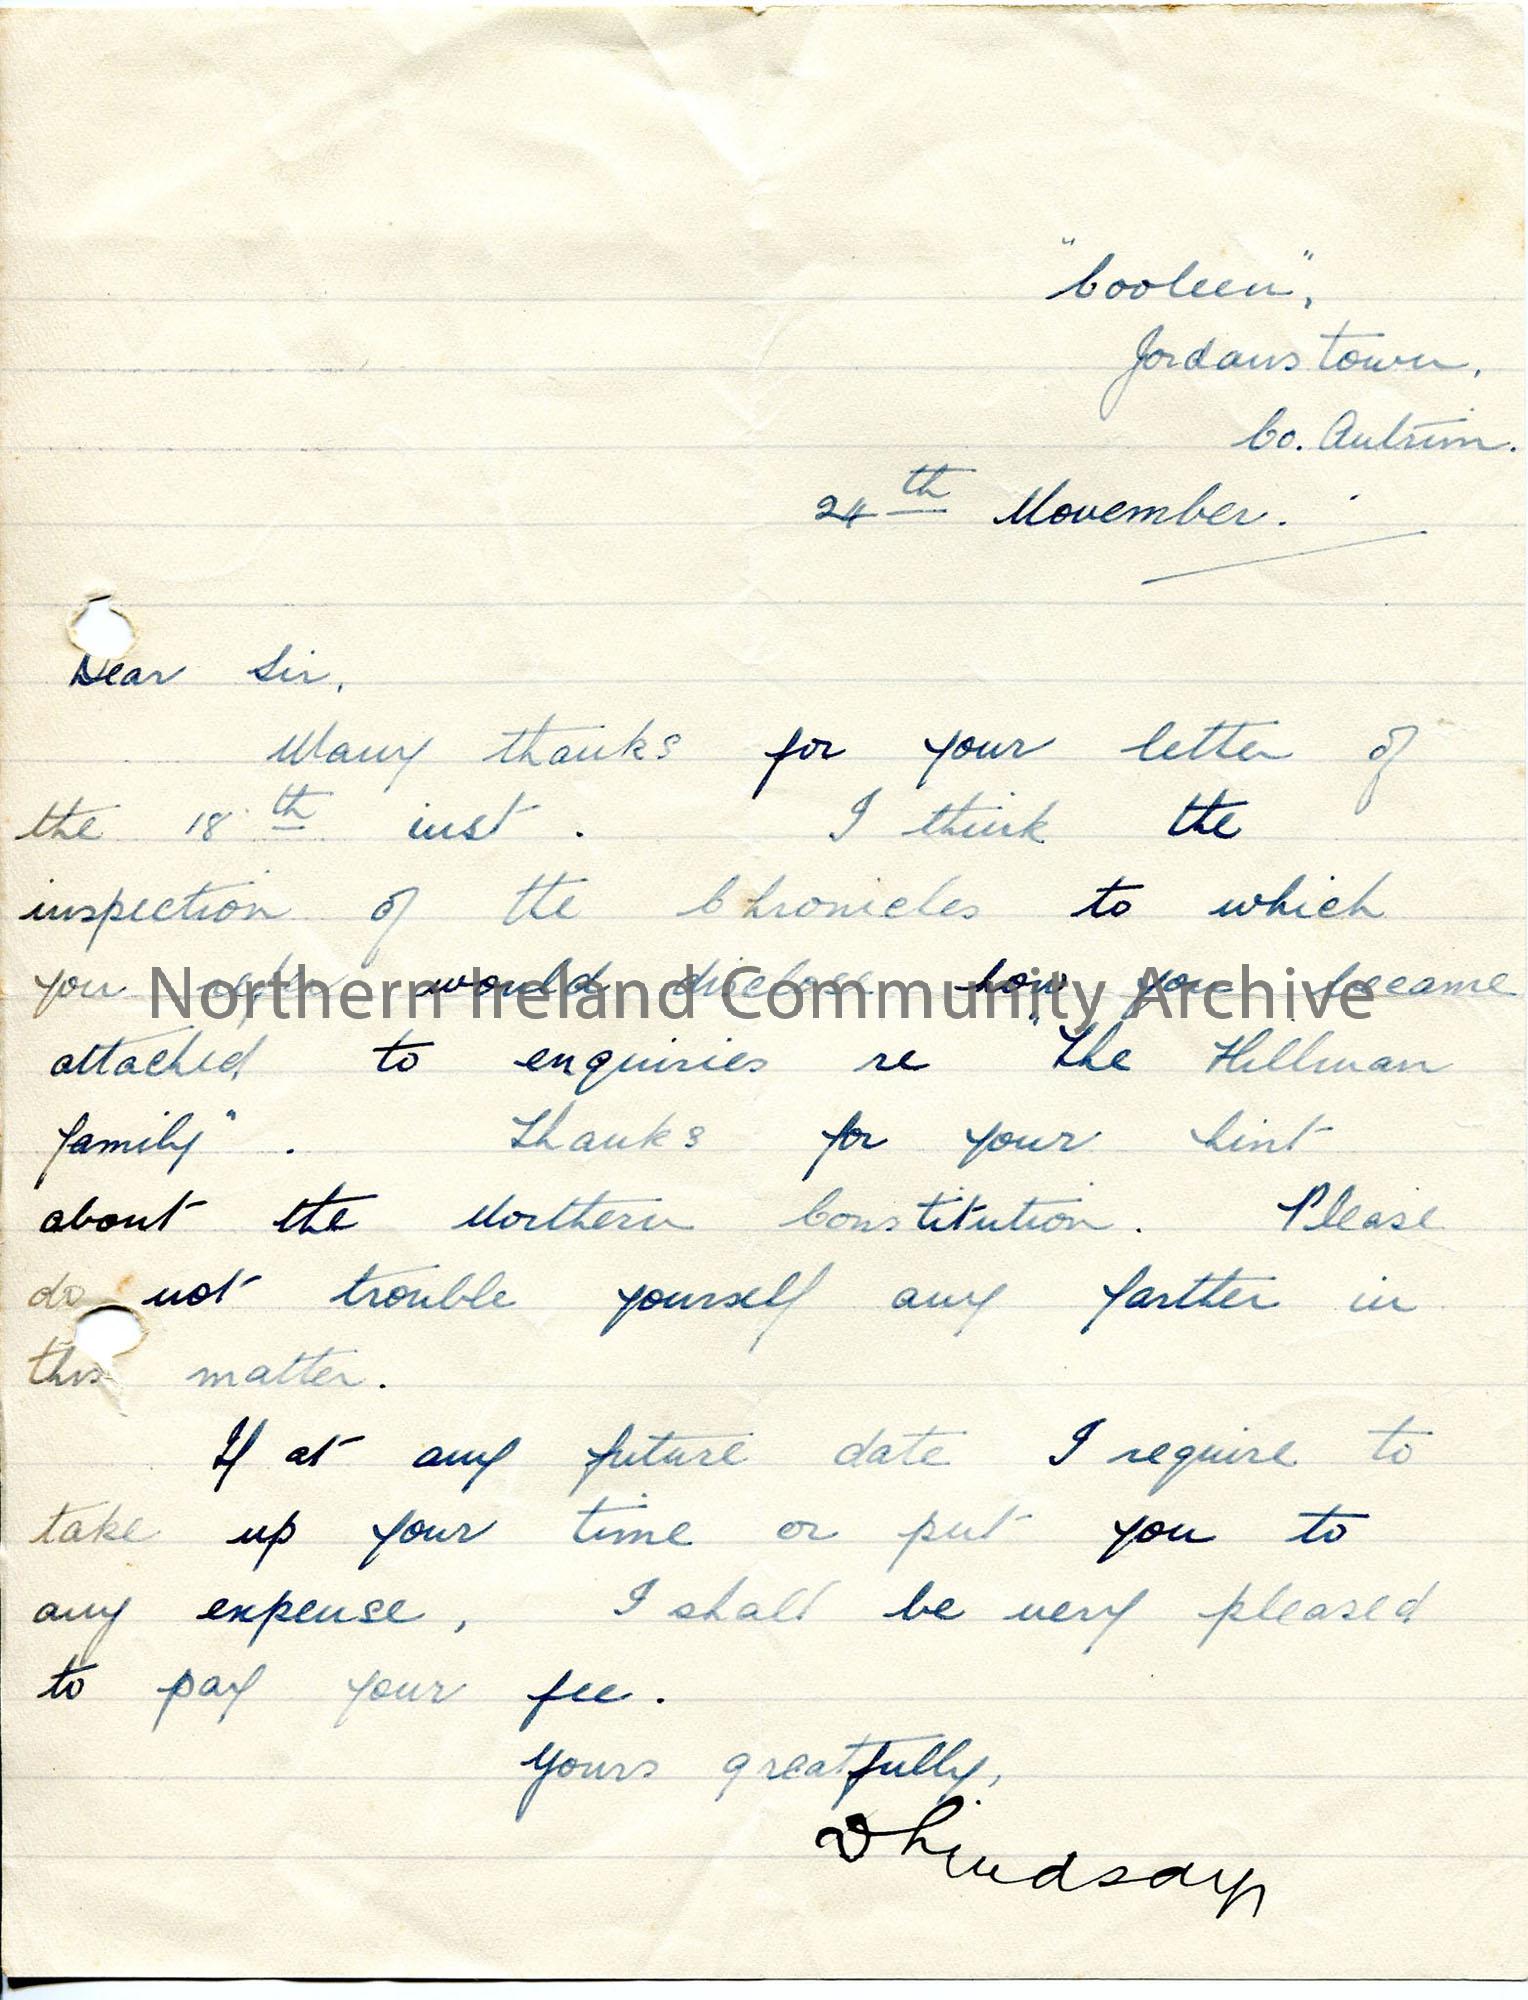 "Cooleen",
Jordanstown,
Co. Antrim.
24th November.
Dear Sir,
Many thanks for your letter of
the 18th inst. I think the
inspection of the Chronicles to which
you refer would disclose how you became
Northern Ireland Community Archive
attached to enquiries re "The Hillman
family". Thanks for your hint
about the Northern Constitution. Please
do not trouble yourself any farther in
this matter.
If at any future date I require to
take up your time or put you to
any expense, I shall be very pleased
to pay your fee.
Yours greatfully,
Lindsay